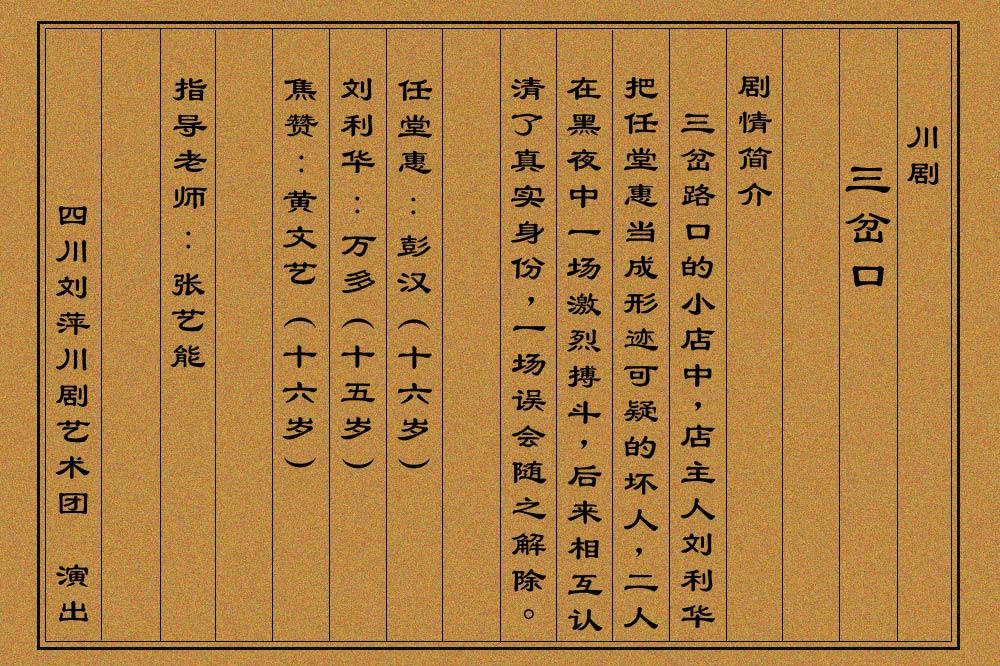 川剧
三岔口
剧情简介
三岔路口的小店中，店主人刘利华
把任堂惠当成形迹可疑的坏人，二人
在黑夜中一场激烈搏斗，后来相互认
清了真实身份，一场误会随之解除。
任堂惠：彭汉（十六岁）
刘利华：万多（十五岁）
焦赞：黄文艺（十六岁）
指导老师：张艺能
四川刘萍川剧艺术团 演出